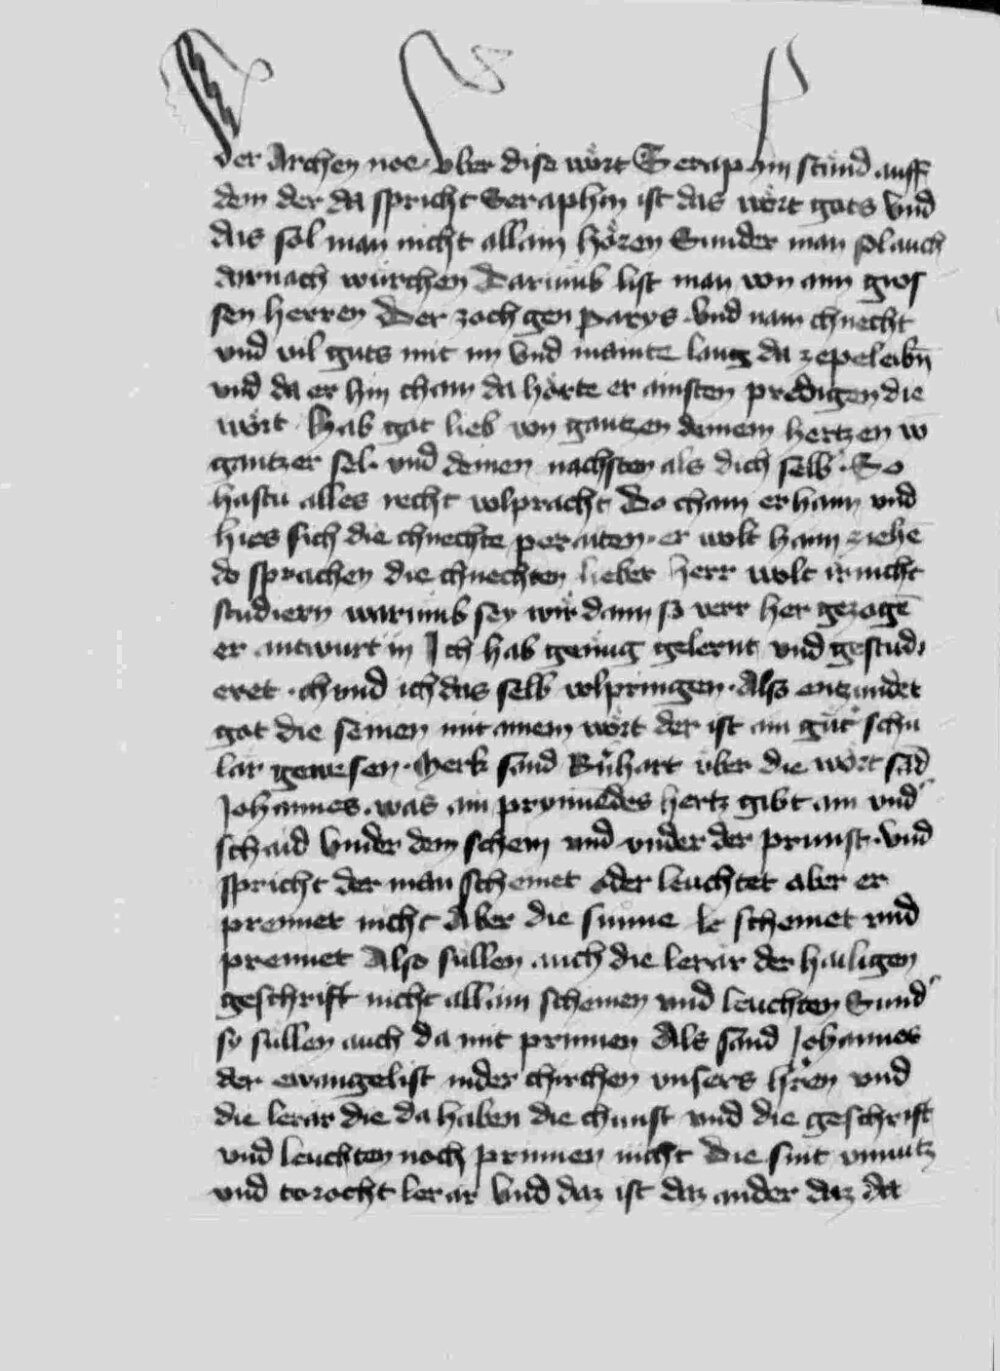 der Archen noe. vber dise wort Seraphin stund auff
dem der da spricht Seraphin ist das wort gots vnd
das sol man nicht allain hören Sunder man sol auch
darnach würchen Darumb list man von aim gros
sen herren Der zoch gen parys. vnd nam chnecht
vnd vil guts mit im vnd mainte lang da ze peleibn̄
vnd da er hin cham da hörte er ainsten predigen die
wört Hab got lieb von gantzen deinem hertzen vō
gantzer sel. vnd deinen nachsten als dich selb. So
hastu alles recht volpracht Do cham er haim vnd
hies sich die chnechte peraiten. er wolt haim ziehē
do sprachen die chnechten lieber herr wolt ir nicht
studiern warumb sey wir dann so verr her gezogē
er antwurt in Ich hab genug gelernt vnd gestudi
eret. chund ich das selb volpringen. Also entzundet
got die seinen mit ainem wört der ist ain gut schu
lär gewesen. Merk sand über die wört sād
Johannes. was ain prynnēdes hertz gibt ain vnd
schaid vnder dem schein vnd vnder der prunst. vnd
spricht der man scheinet oder leuchtet aber er
prennet nicht Aber die sunne scheinet vnd
prennet Also süllen auch die lerär der hailigen
geschrift nicht allain scheinen vnd leuchten Sund'
sy süllen auch da mit prinnen Als sand Johannes
der ewangelist in der chirchen vnsers hren vnd
die lerär die da haben die chunst vnd die geschrift
vnd leuchten noch prinnen nicht die sint vnnutz
vnd torocht lerär vnd daz ist daz ander daz da